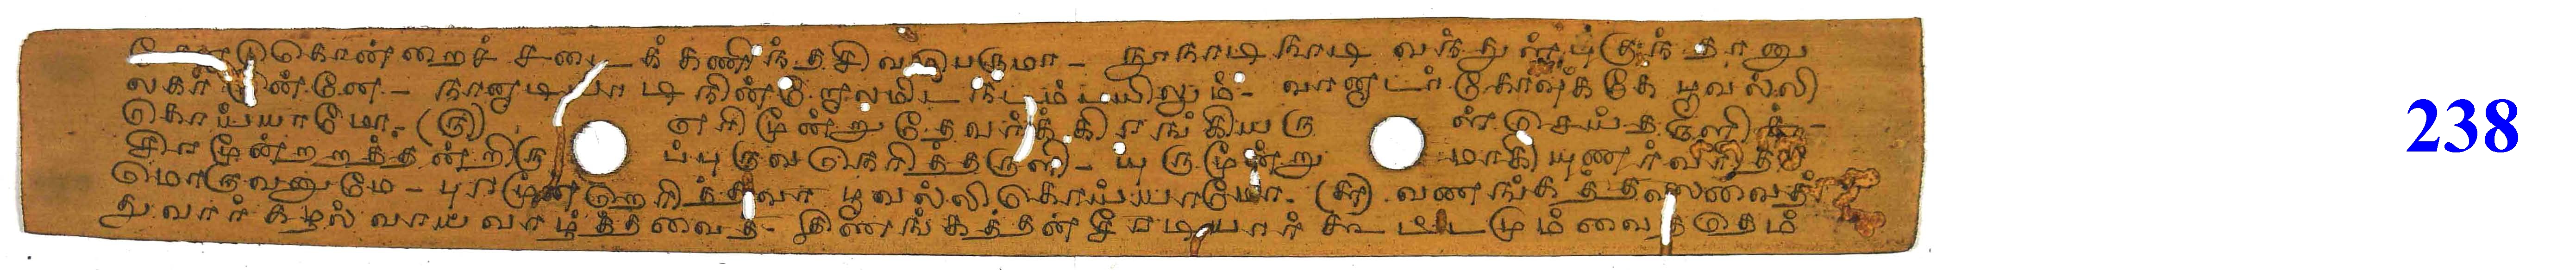 தேனாடு கொன்றைச் சடைக் கணிந்த சிவபெருமா - னூனாடி நாடி வந்துள் புகுந்தானு
லகர் முன்னே - நானாடியாடி நின்றோலமிட நடம் பயிலும் - வானாடர் கோவுக்கே பூவல்லி
கொய்யாமோ. (௫) எரி மூன்று தேவர்க் கிரங்கியரு ள் செய்தருளிச் -
சிர மூன்றறத்தன்றிரு ப்புருவ நெரித்தருளி - யுருமூன்று மாகியுணர்வரித
மொருவனுமே - புரமூன் றெரித்தவா பூவல்லி கொய்யாமோ. (௬) வணங்கத்தலைவைத்
து வார்கழல் வாய் வாழ்த்தவைத் - திணங்கத்தன் சீரடியார் கூட்டமும் வைத்தெம்
238